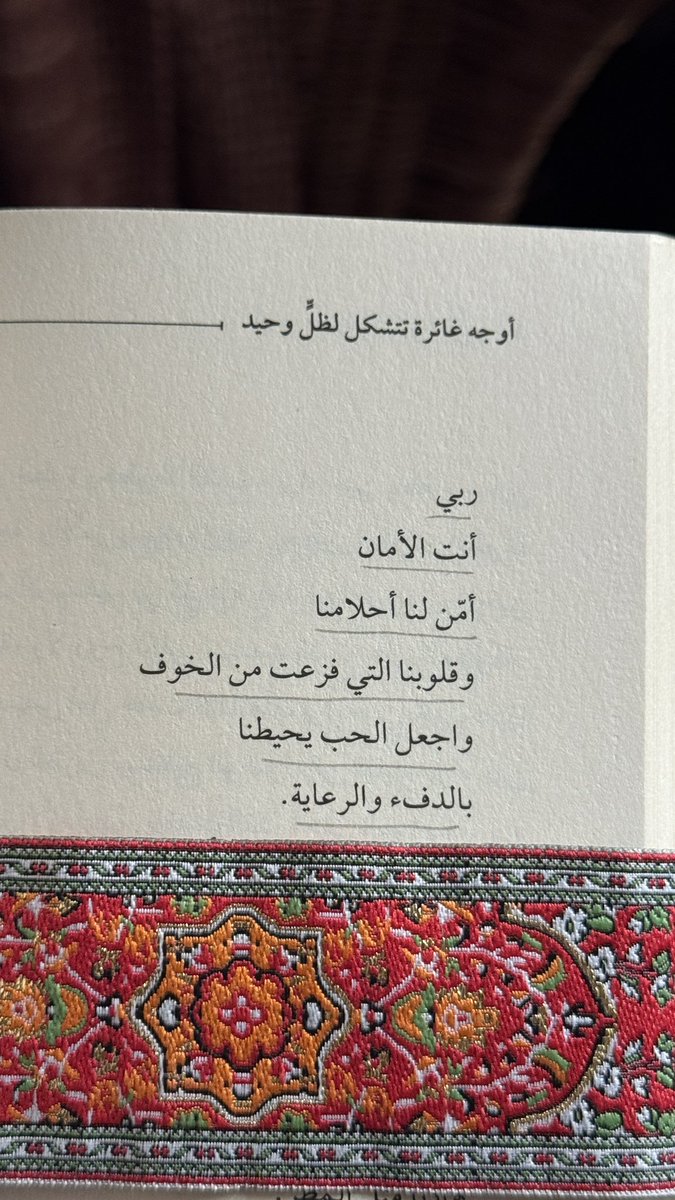 أوجه غائرة تتشكل لظلٍّ وحيد
ربي
أنت الأمان
أمّن لنا أحلامنا
وقلوبنا التي فزعت من الخوف
واجعل الحب يحيطنا
بالدفء والرعاية.